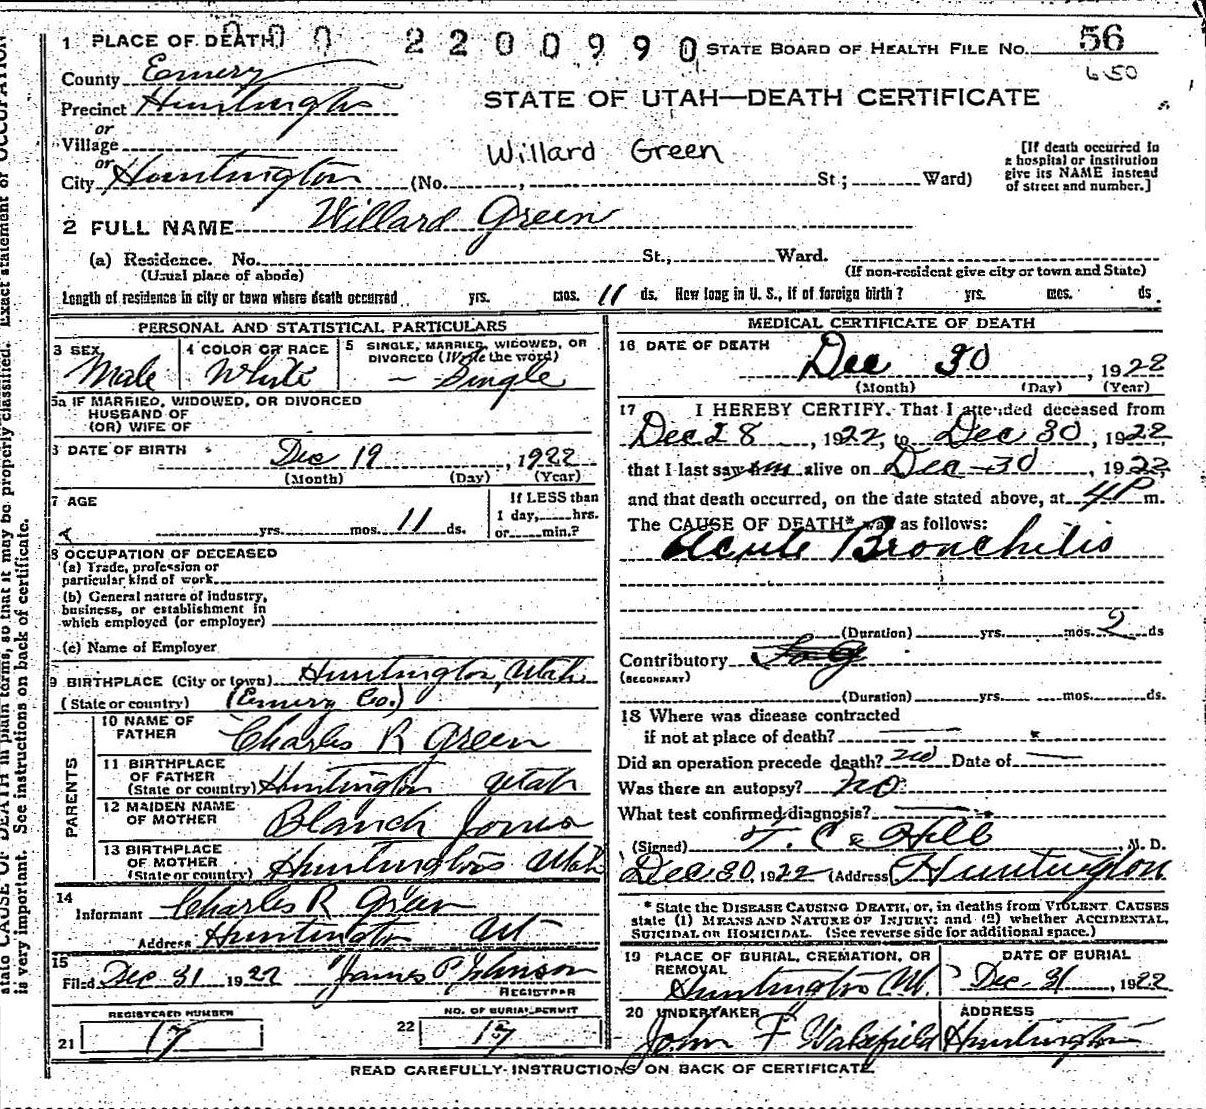 1 PLACE OF DEATH 000 2200990 STATE BOARD OF HEALTH FILE NO. 56
County Emery 650
Precinct Huntington STATE OF UTAH—DEATH CERTIFICATE
or
Village
or Willard Green
City Huntington (No. , St.; Ward) [If death occurred in a hospital or institution give its NAME instead of street and number.]
2 FULL NAME Willard Green
(a) Residence. No. St., Ward.
(Usual place of abode) (If non-resident give city or town and State)
Length of residence in city or town where death occurred yrs. mos. 11 ds. How long in U. S., if of foreign birth? yrs. mos. ds.
PERSONAL AND STATISTICAL PARTICULARS
3 SEX
Male
4 COLOR OR RACE
White
5 SINGLE, MARRIED, WIDOWED, OR
DIVORCED (Write the word)
– Single
5a IF MARRIED, WIDOWED, OR DIVORCED
HUSBAND OF
(OR) WIFE OF
DATE OF BIRTH Dec 19, 1922
(Month) (Day) (Year)
7 AGE
yrs. mos. 11 ds.
If LESS than
1 day, hrs.
or min.?
8 OCCUPATION OF DECEASED
(a) Trade, profession or
particular kind of work
(b) General nature of industry,
business, or establishment in
which employed (or employer)
(c) Name of Employer
9 BIRTHPLACE (City or town) Huntington, Utah.
(State or country) (Emery Co.)
PARENTS
10 NAME OF
FATHER Charles R Green
11 BIRTHPLACE
OF FATHER
(State or country) Huntington Utah
12 MAIDEN NAME
OF MOTHER Blanch Jones
13 BIRTHPLACE
OF MOTHER
(State or country) Huntington Utah
14
Informant Charles R Green
Address Huntington Ut
15
Filed Dec 31 1922 James P Johnson
REGISTRAR
REGISTERED NUMBER
21 17
NO. OF BURIAL PERMIT
22 17
MEDICAL CERTIFICATE OF DEATH
16 DATE OF DEATH
Dec 30, 1922
(Month) (Day) (Year)
17 I HEREBY CERTIFY. That I attended deceased from
Dec 28, 1922, to Dec 30, 1922
that I last saw him alive on Dec—30, 1922,
and that death occurred, on the date stated above, at 4P m.
The CAUSE OF DEATH* was as follows:
Acute Bronchitis
(Duration) yrs. mos. 2 ds
Contributory
(SECONDARY)
(Duration) yrs. mos. ds.
18 Where was disease contracted
if not at place of death?
Did an operation precede death? no Date of —
Was there an autopsy? no
What test confirmed diagnosis?
(Signed) T. C. Hill, M. D.
Dec 30, 1922 (Address) Huntington
* State the DISEASE CAUSING DEATH, or, in deaths from VIOLENT CAUSES
state (1) MEANS AND NATURE OF INJURY; and (2) whether ACCIDENTAL,
SUICIDAL OR HOMICIDAL. (See reverse side for additional space.)
19 PLACE OF BURIAL, CREMATION, OR
REMOVAL
Huntington Ut.
DATE OF BURIAL
Dec. 31, 1922
20 UNDERTAKER
John F Wakefield
ADDRESS
Huntington
READ CAREFULLY INSTRUCTIONS ON BACK OF CERTIFICATE
state CAUSE OF DEATH in plain terms, so that it may be properly classified. Exact statement of OCCUPATION
is very important. See instructions on back of certificate.